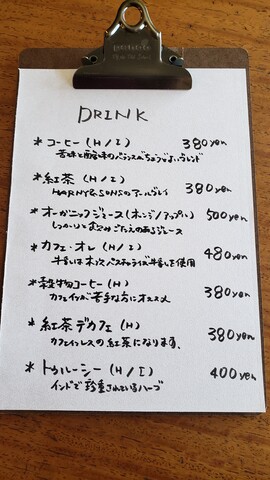 DRINK
*コーヒー(H/I) 380yen
苦味と酸味のバランスがちょうどよいブレンド
*紅茶(H/I) 380yen
HARNY&SONSのアールグレイ
*オーガニックジュース(オレンジ/アップル) 500yen
しっかりと飲みごたえのあるジュース
*カフェ・オレ(H/I) 480yen
牛乳は木次パスチャライズ牛乳を使用
*穀物コーヒー(H) 380yen
カフェインが苦手な方にオススメ
*紅茶デカフェ(H) 380yen
カフェインレスの紅茶になります、
*トゥルーシー(H/I) 400yen
インドで珍重されているハーブ